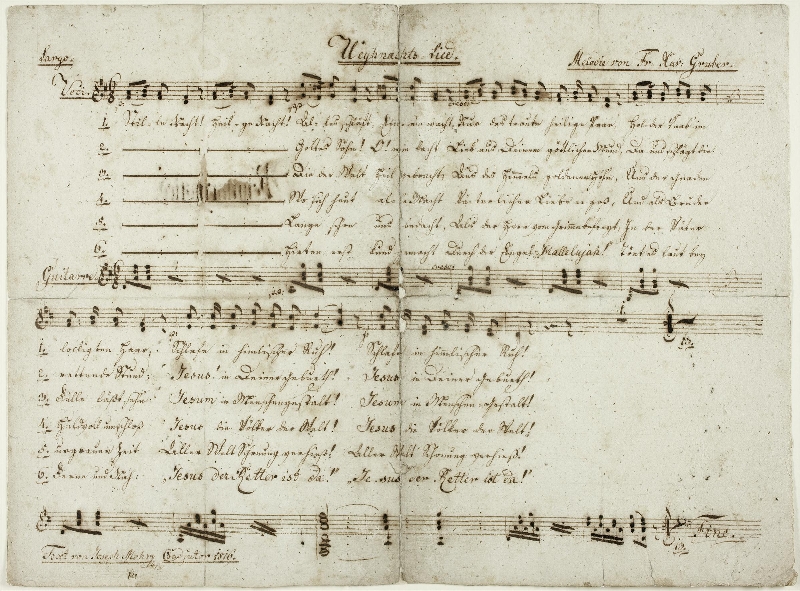 Weyhnachts-Lied.
Largo.
Melodie von Fr. Xav. Gruber.
Voce.
1. Stil-le Nacht! Heil-ge Nacht! Al-les schläft, Einsam wacht, Nur das traute heilige Paar. Hol-der Knab' im
2. Gottes Sohn! O! wie lacht Lieb' aus Deinem göttlichen Mund, Da uns schlägt die
3. Die der Welt Heil gebracht, Aus des Himmels goldenen Höhn, Uns der Gnaden
4. Wo sich heut alle Macht Väterlicher Liebe ergoß, Und als Bruder
5. Lange schon uns bedacht, Als der Herr vom Grimme befreyt, In der Väter
6. Hirten erst kund gemacht Durch der Engel „Hallelujah!“ Tönt es laut bey
Guitarre.
1. lockigten Haar; Schlafe in himlischer Ruh! Schlafe in himlischer Ruh!
2. rettende Stund: Jesus! in Deiner Geburth! Jesus in Deiner Geburth!
3. Fülle läßt sehn: Jesum in Menschengestalt! Jesum in Menschen-Gestalt!
4. Huldvoll umschloß Jesus die Völker der Welt! Jesus die Völker der Welt!
5. urgrauer Zeit Aller Welt Schonung verhieß! Aller Welt Schonung verhieß!
6. Ferne und Nah: „Jesus der Retter ist da!“ „Jesus der Retter ist da!“
Fine.
Text von Joseph Mohr, Coadjutor 1816.